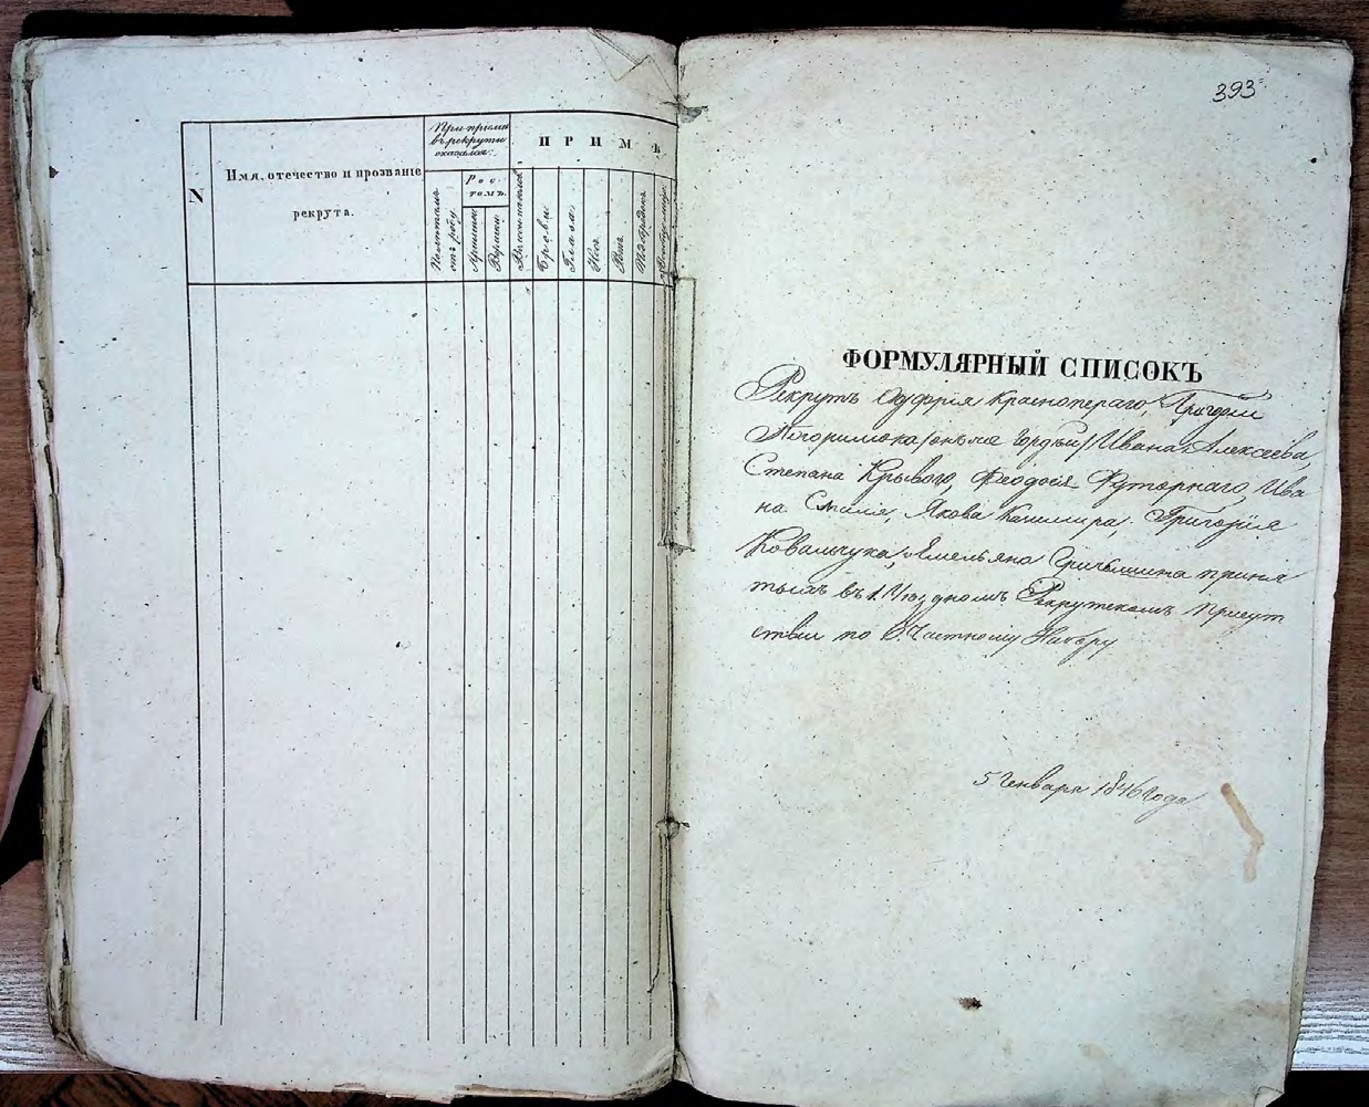 N
Имя, отечество и прозвание
рекрута.
При приеме
въ рекруты
оказался:
Рос-
томъ.
Лѣтъ
отъ роду
Аршинъ
Вершки
Волосы
Брови
Глаза
Носъ
Ротъ
Подбородокъ
ПРИМѢ
393
ФОРМУЛЯРНЫЙ СПИСОКЪ
Рекрутъ Онуфрія Краснопераго, Григорія
Ивана Алексеева,
Степана Крывого, Феодосія Футорнаго, Ива
на Смиля, Якова Кашмира, Григорія
Ковальчука, Емельяна Гричышина приня
тыхъ въ 1. Уѣздномъ Рекрутскомъ Присут
ствіи по 6. Частному Набору
5 Генваря 1846 года